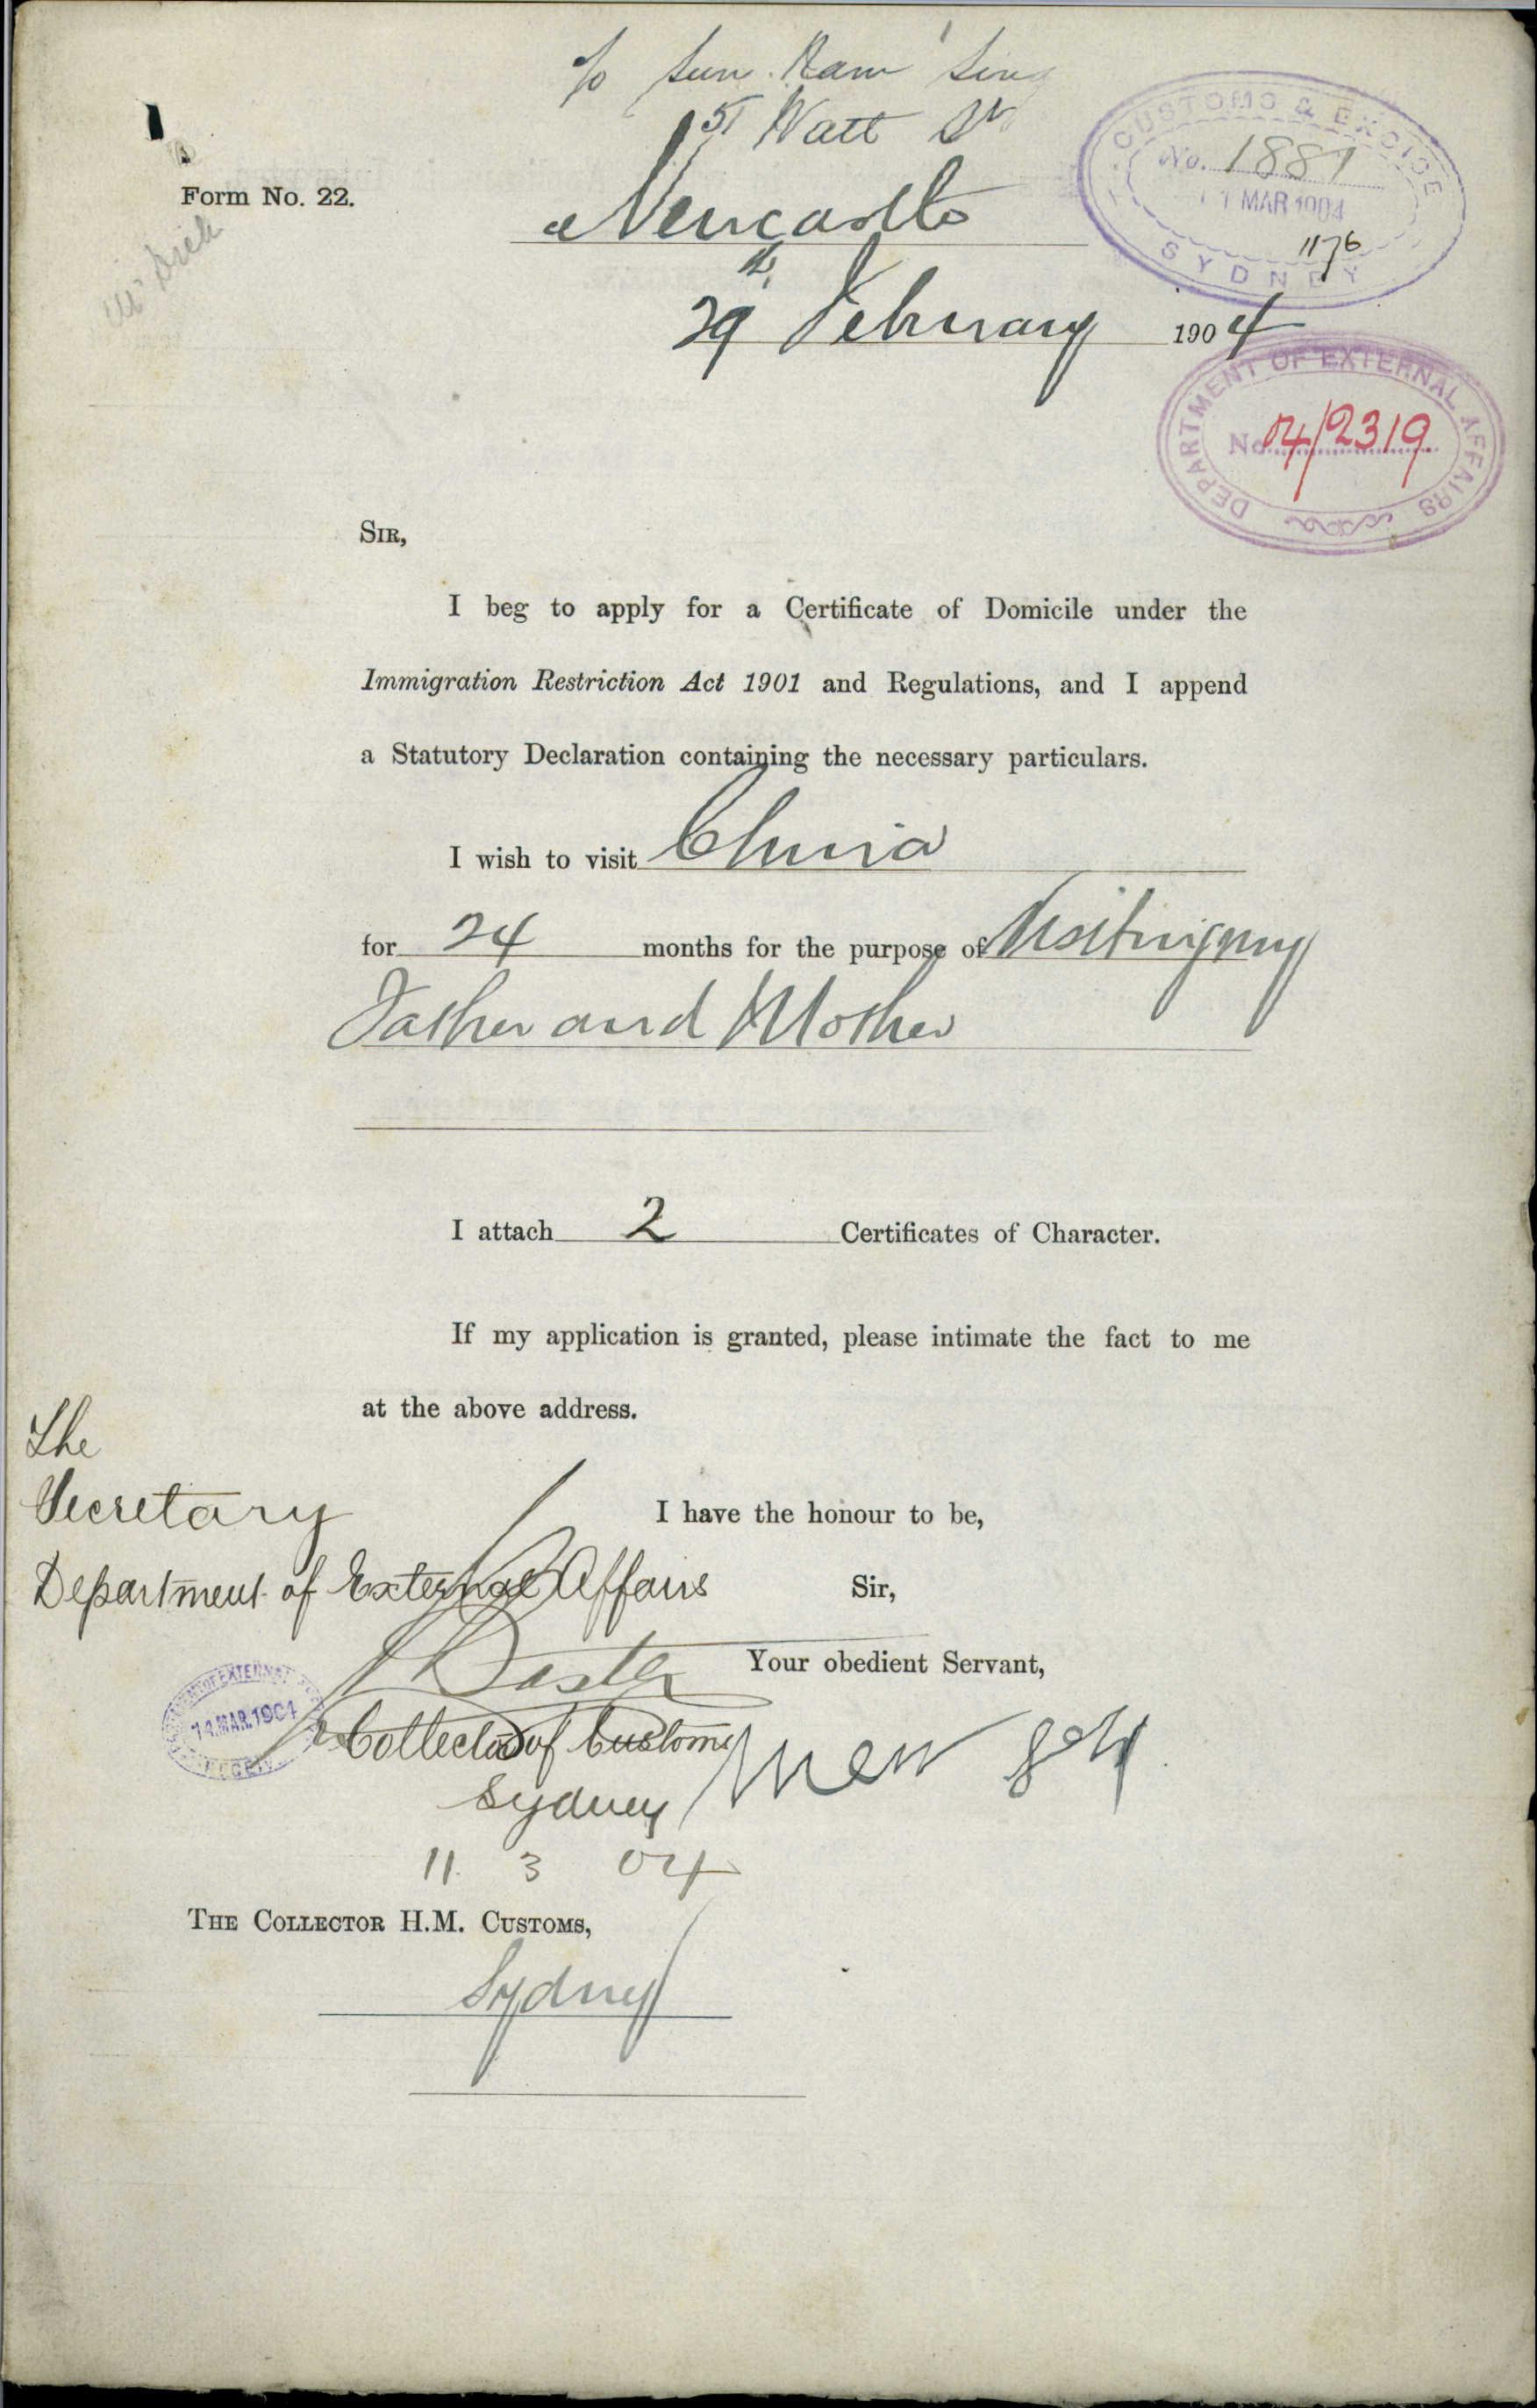 c/o Sun Nam Sing
51 Watt St
CUSTOMS & EXCISE
No. 1881
11 MAR 1904
1176
SYDNEY
Form No. 22.
Newcastle
29th February 1904
DEPARTMENT OF EXTERNAL AFFAIRS
No. 04/2319
SIR,
I beg to apply for a Certificate of Domicile under the
Immigration Restriction Act 1901 and Regulations, and I append
a Statutory Declaration containing the necessary particulars.
I wish to visit China
for 24 months for the purpose of Visiting my
Father and Mother
I attach 2 Certificates of Character.
If my application is granted, please intimate the fact to me
at the above address.
The
Secretary
I have the honour to be,
Department of External Affairs
Sir,
Baxter
Your obedient Servant,
14 MAR. 1904
Collector of Customs
Sydney
11 3 04
THE COLLECTOR H.M. CUSTOMS,
Sydney